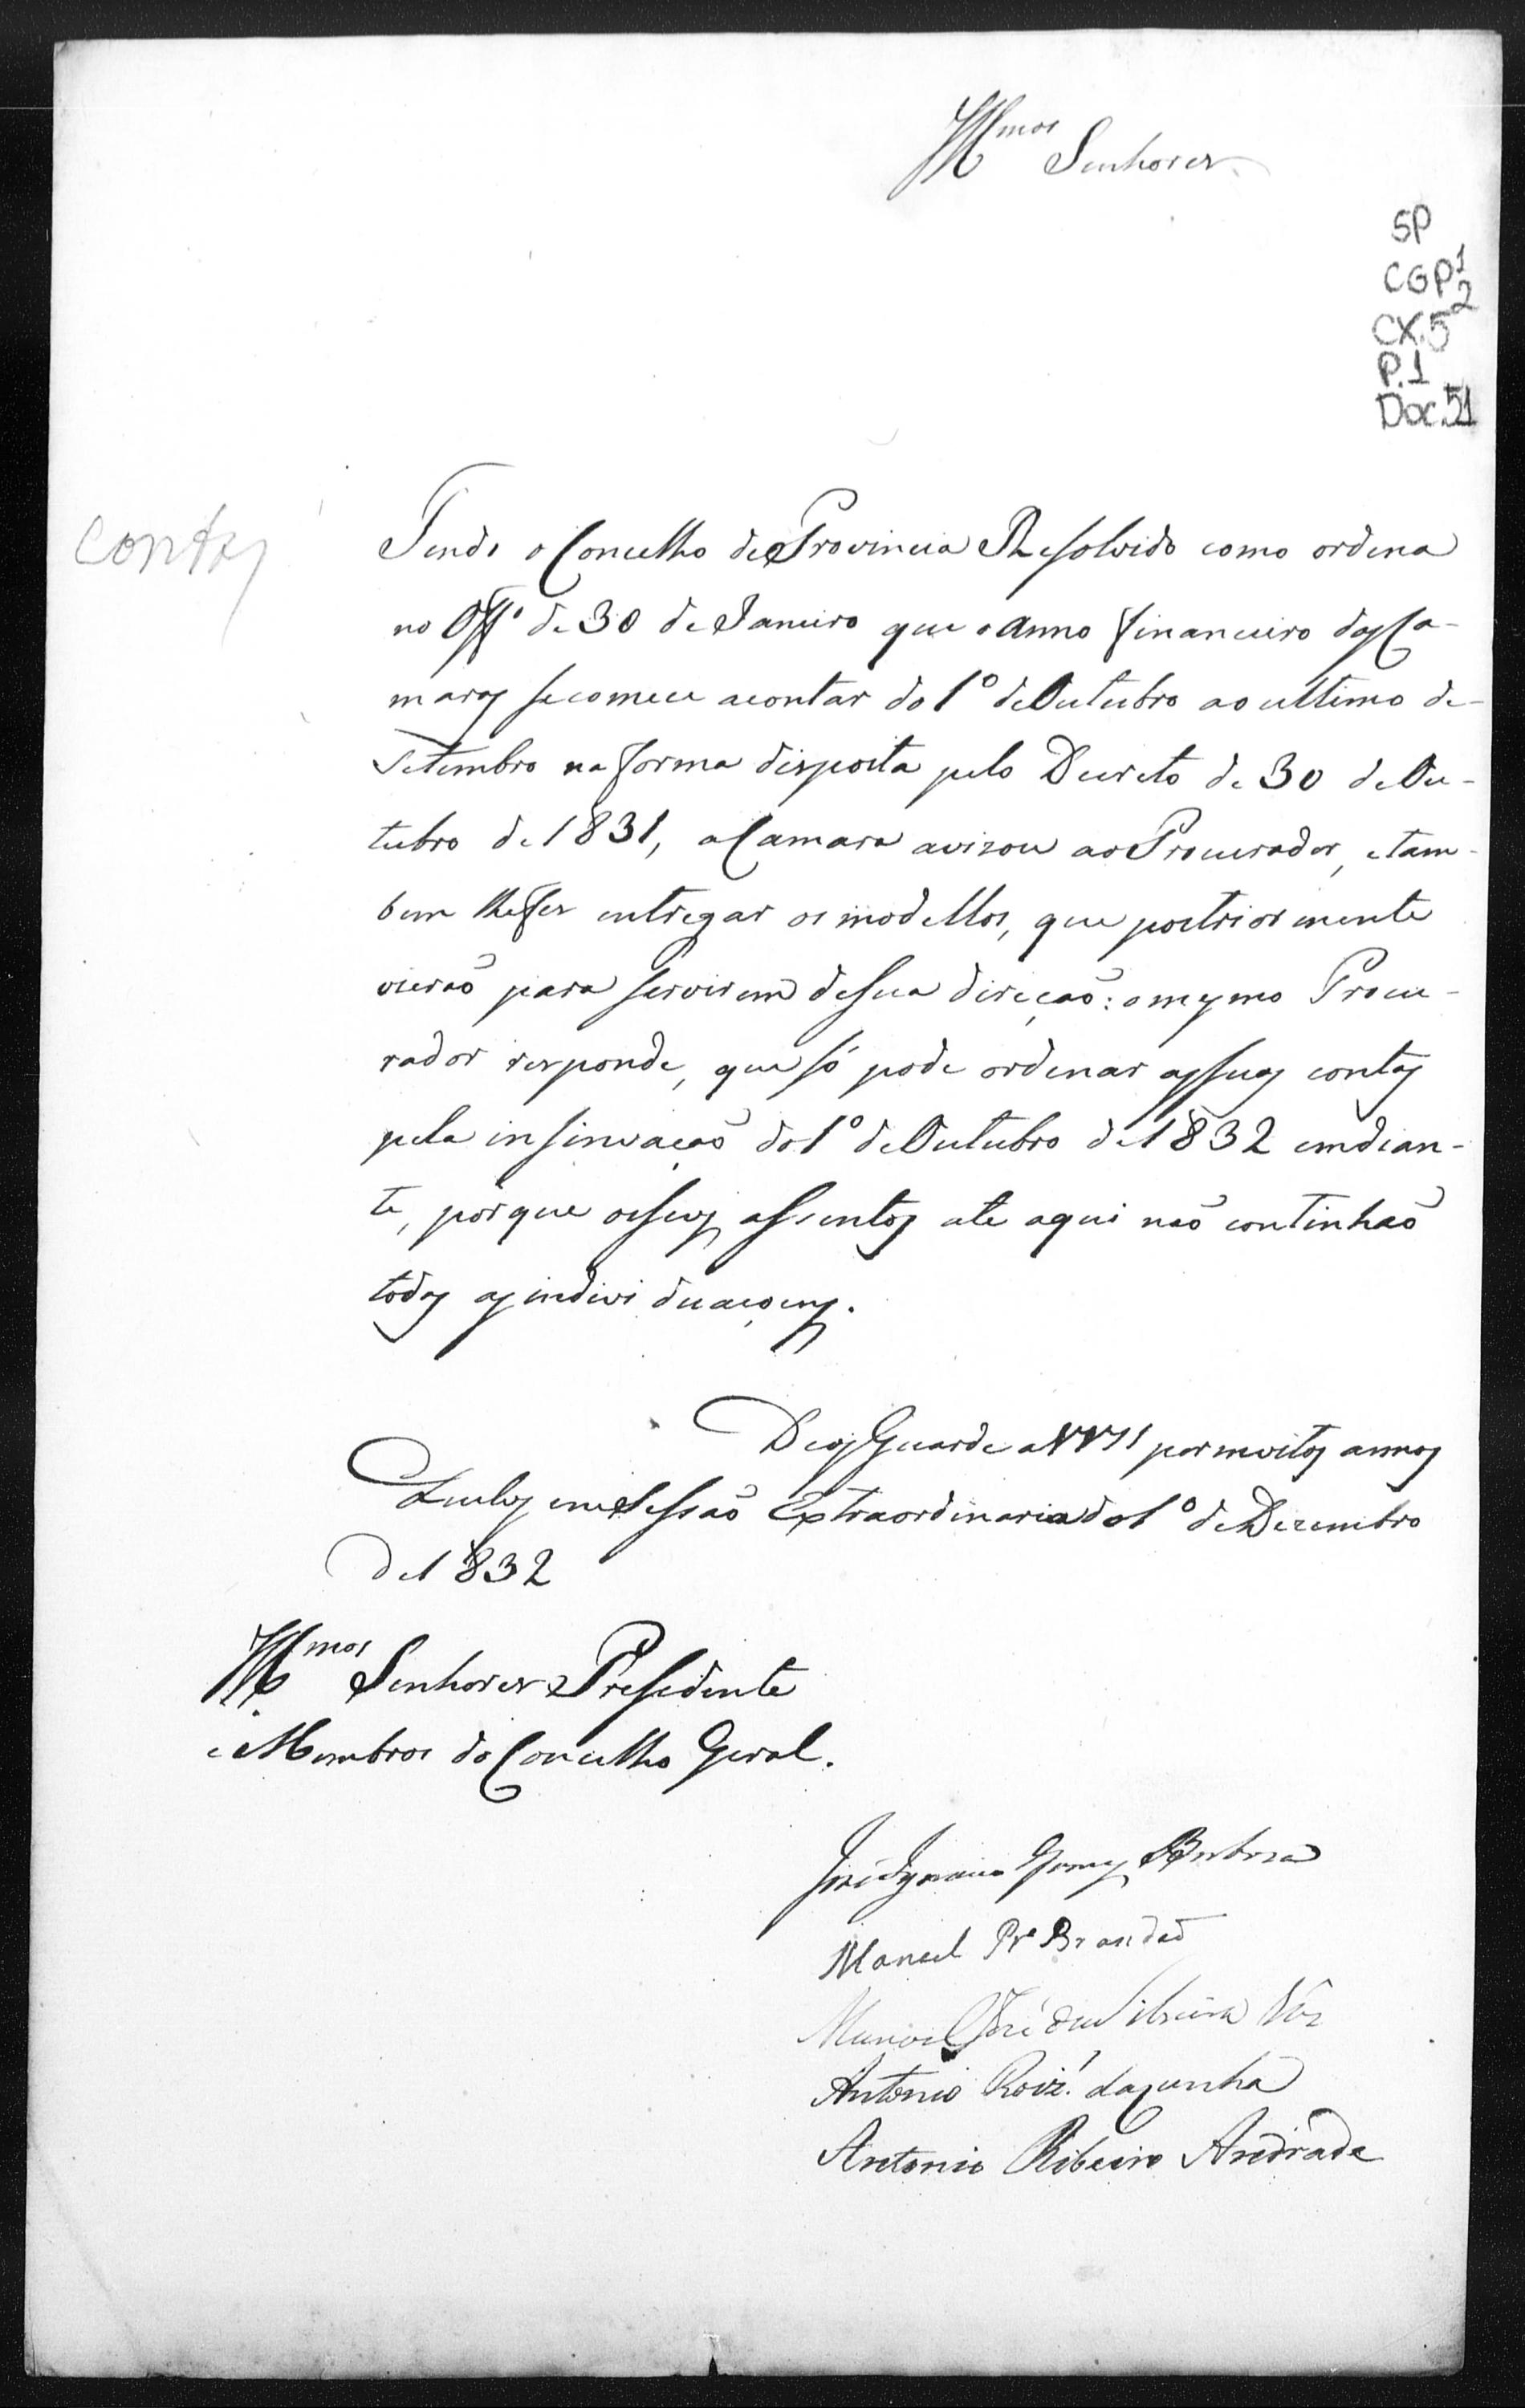 Illmos Senhores
SP
CGP1.2
CX.5
P.1
Doc.51
Contas
Tendo o Concelho de Provincia Resolvido como ordena
no Offo de 30 de Janeiro que o Anno financeiro das Ca-
maras se comece a contar do 1º de Outubro ao ultimo de
Setembro na forma disposta pelo Decreto de 30 de Ou-
tubro de 1831, a Camara avizou ao Procurador, e tam-
bem lhe fez entregar os modellos, que posteriormente
vierão para servirem de sua direcção: o mesmo Procu-
rador responde, que só pode ordenar as suas contas
pela insinuação do 1º de Outubro de 1832 em dian-
te, porque os seus assentos ate aqui não continhão
todas as individuaçoens.
Deos Guarde a VVSS por muitos annos
Quelus em Sessão Extraordinaria do 1º de Dezembro
de 1832
Illmos Senhores Presidente
e Membros do Concelho Geral.
José Ignacio Gomes Barboza
Manoel Pra Brandão
Manoel José da Silveira
Antonio Roiz' da Cunha
Antonio Ribeiro Andrade